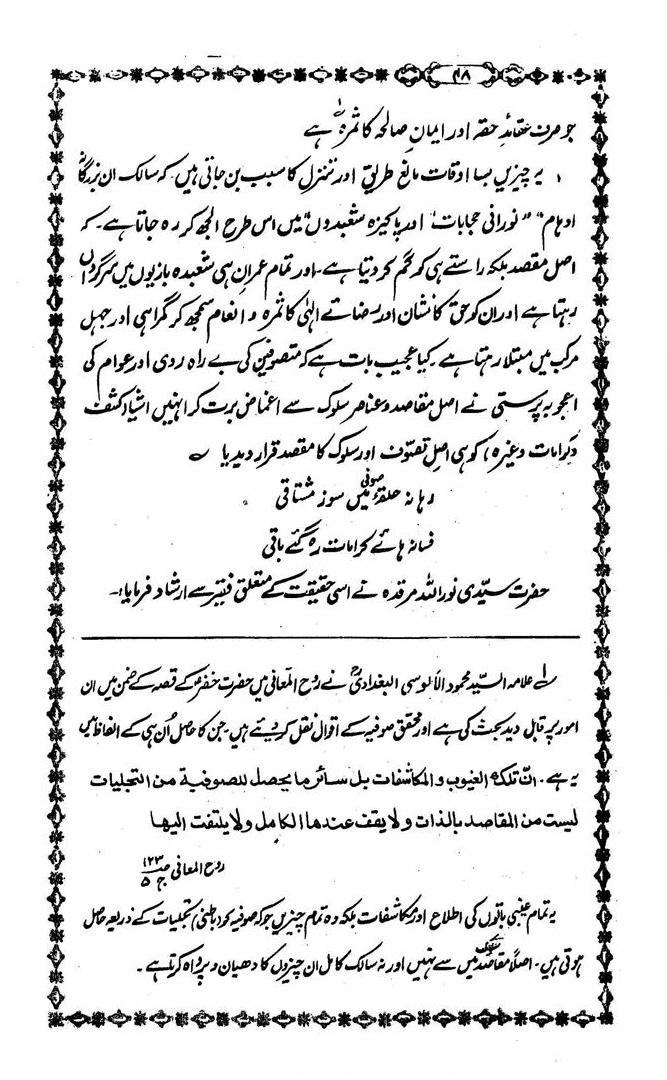 ۴۸
جو صرف عقائدِ حقہ اور ایمانِ صالحہ کا ثمرہ ہے ؂۱
، یہ چیزیں بسا اوقات مانع طریق اور تنزل کا سبب بن جاتی ہیں۔ کہ سالک ان بزرگانہ
اوہام" "نورانی حجابات" اور پاکیزہ شعبدوں" میں اس طرح الجھ کر رہ جاتا ہے۔ کہ
اصل مقصد بلکہ راستے ہی کو گم کر دیتا ہے۔ اور تمام عمر ان ہی شعبدہ بازیوں میں سرگرداں
رہتا ہے اور ان کو حق کا نشان اور رضائے الہٰی کا ثمرہ و انعام سمجھ کر گمراہی اور جہل
مرکب میں مبتلا رہتا ہے۔ کیا عجیب بات ہے کہ متصوفین کی بے راہ روی اور عوام کی
اعجوبہ پرستی نے اصل مقاصد و عناصر سلوک سے اغماض برت کر انہیں اشیاء کشف
وکرامات وغیرہ، کو ہی اصل تصوّف اور سلوک کا مقصد قرار دیدیا ؎
رہا نہ حلقۂ صوفی میں سوز مشتاقی
فسانہ ہائے کرامات رہ گئے باقی
حضرت سیّدی نور اللہ مرقدہ نے اسی حقیقت کے متعلق فقیر سے ارشاد فرمایا:۔
؂۱ علامہ السیّد محمود الآلوسی البغدادیؒ نے روح المعانی میں حضرت خضرؑ کے قصہ کے ضمن میں ان
امور پر قابل دید بحث کی ہے اور محقق صوفیہ کے اقوال نقل کر دیئے ہیں۔ جن کا حاصل اُن ہی کے الفاظ میں
یہ ہے۔ انّ تلك العيوب والمكاشفات بل سائر ما يحصل للصوفية من التجليات
ليست من المقاصد بالذات ولا يقف عندها الكامل ولا يلتفت اليها
روح المعانی ص۱۲۳ ج ۵
یہ تمام غیبی باتوں کی اطلاع اور مکاشفات بلکہ وہ تمام چیزیں جو کہ صوفیہ کو (باطنی) تجلیات کے ذریعہ حاصل
ہوتی ہیں۔ اصلاً مقاصد سلوک میں سے نہیں اور نہ سالک کامل ان چیزوں کا دھیان و پرواہ کرتا ہے۔